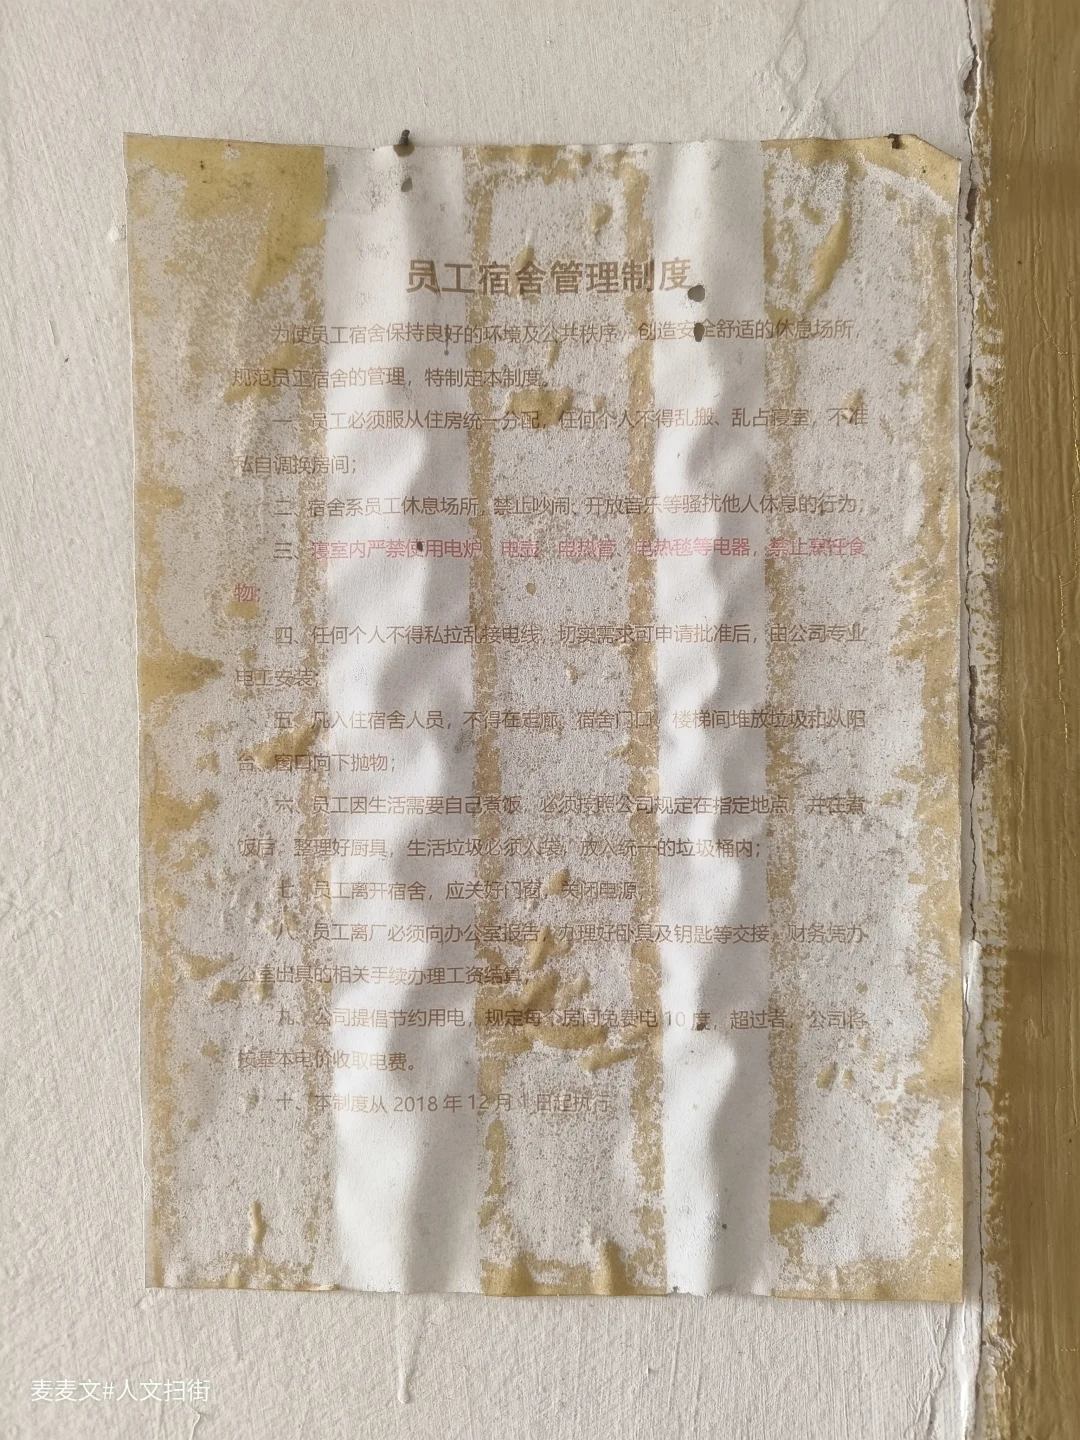 员工宿舍管理制度
为使员工宿舍保持良好的环境及公共秩序，创造安全舒适的休息场所，
规范员工宿舍的管理，特制定本制度。
一、员工必须服从住房统一分配，任何个人不得乱搬、乱占寝室，不准
私自调换房间；
二、宿舍系员工休息场所，禁止吵闹、开放音乐等骚扰他人休息的行为；
三、寝室内严禁使用电炉、电壶、电热管、电热毯等电器，禁止烹饪食
物；
四、任何个人不得私拉乱接电线，切实需求可申请批准后，由公司专业
电工安装；
五、凡入住宿舍人员，不得在走廊、宿舍门口、楼梯间堆放垃圾和从阳
台、窗口向下抛物；
六、员工因生活需要自己煮饭，必须按照公司规定在指定地点，并在煮
饭后，整理好厨具，生活垃圾必须入袋，放入统一的垃圾桶内；
七、员工离开宿舍，应关好门窗，关闭电源；
八、员工离厂必须向办公室报告，办理好卧具及钥匙等交接，财务凭办
公室出具的相关手续办理工资结算；
九、公司提倡节约用电，规定每个房间免费电 10 度，超过者，公司将
按基本电价收取电费。
十、本制度从 2018 年 12 月 1 日起执行。
麦麦文#人文扫街